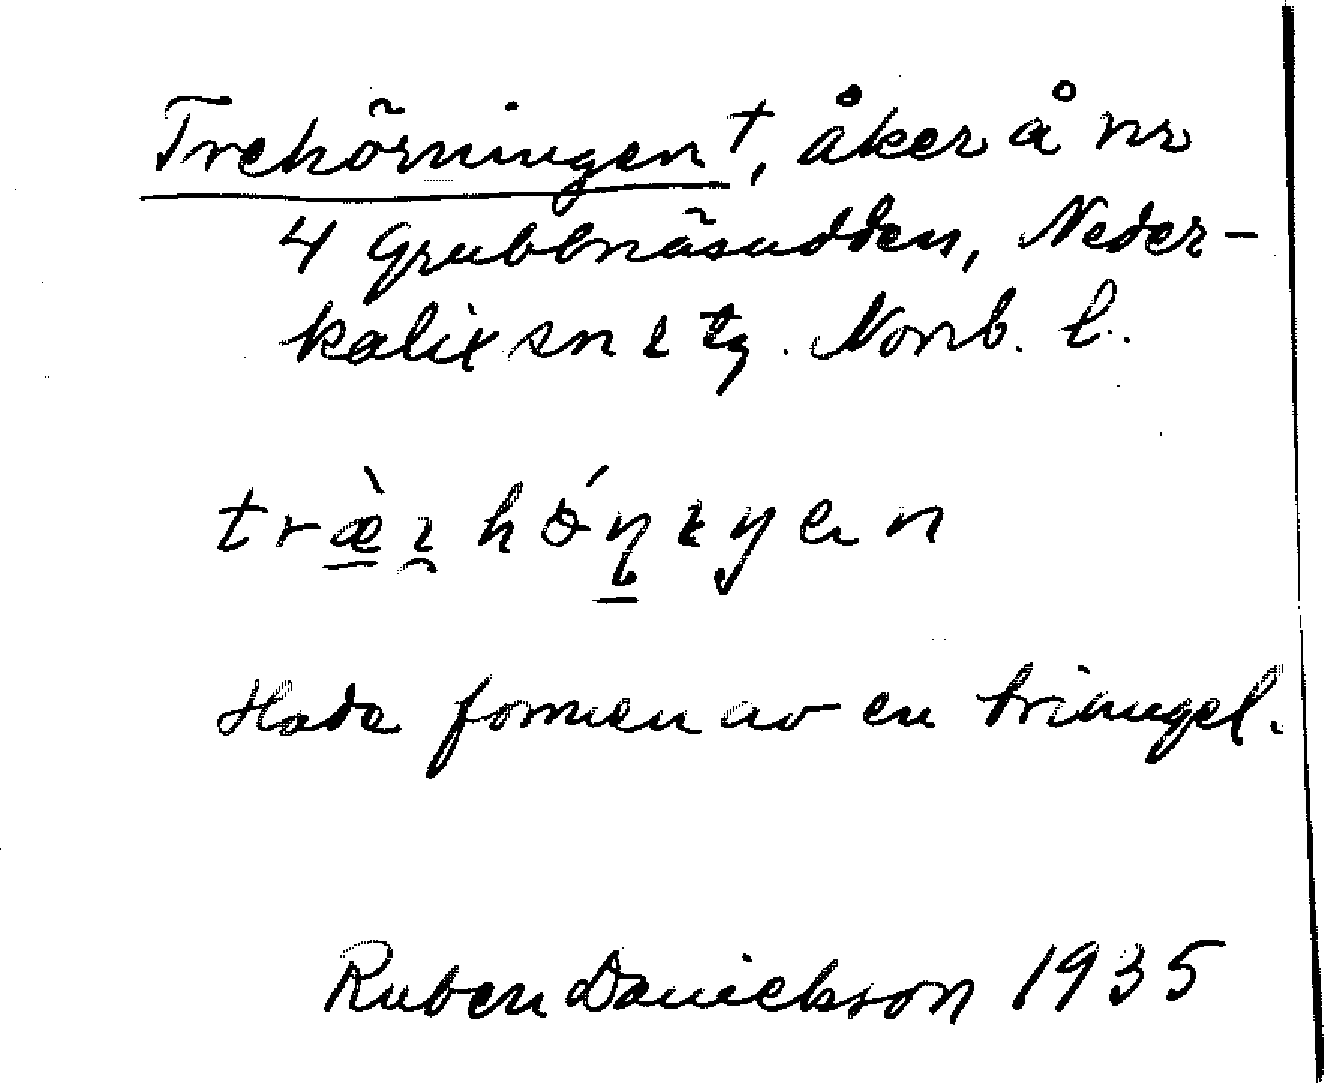 Trehörningen†, åker å nr
4 Grubbnäsudden, Neder-
kalix sn o tg. Norrb. l.
Hade formen av en triangel.
Ruben Danielsson 1935